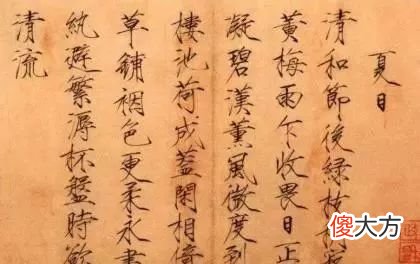 夏日
清和節後綠枝
黃梅雨乍收畏日正
凝碧漢薰風微度到
棲池荷成蓋閑相倚
草鋪裀色更柔永晝
紈避繁溽杯盤時欲
清流
傻大方